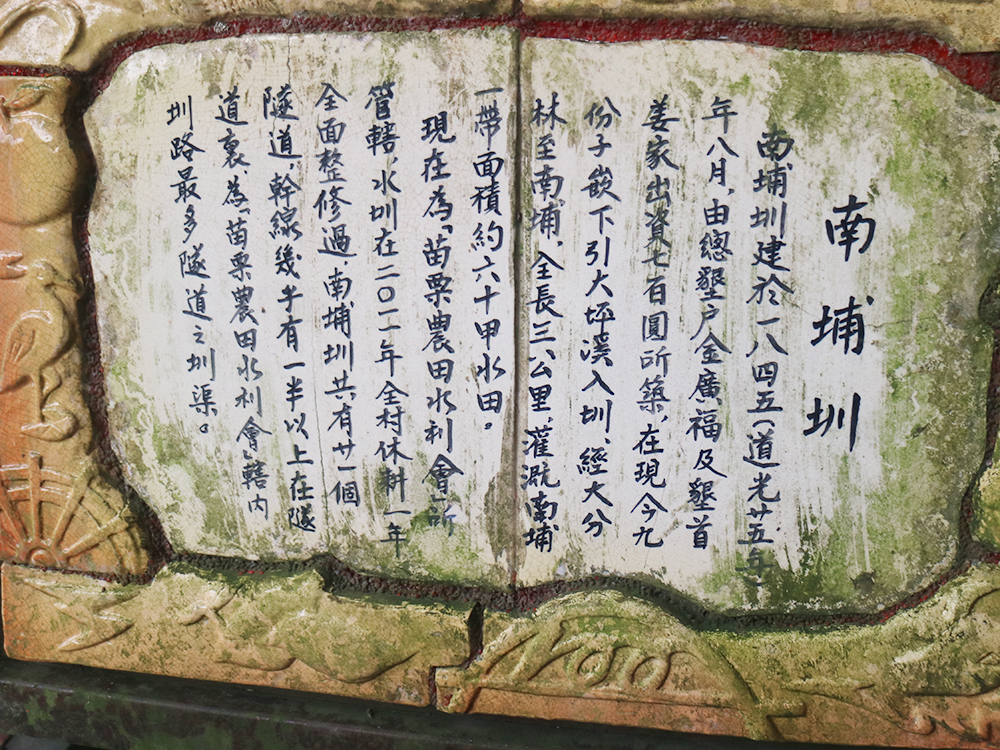 南埔圳
南埔圳建於一八四五(道光廿五年)
年八月,由總墾户金廣福及墾首
姜家出資七百圓所築,在現今九
份子崁下引大坪溪入圳,經大分
林至南埔,全長三公里,灌溉南埔
一帶面積約六十甲水田。
現在為「苗栗農田水利會」所
管轄,水圳在二〇一一年全村休耕一年
全面整修過,南埔圳共有廿一個
隧道,幹線幾乎有一半以上在隧
道裏,為「苗栗農田水利會」轄內
圳路最多隧道之圳渠。